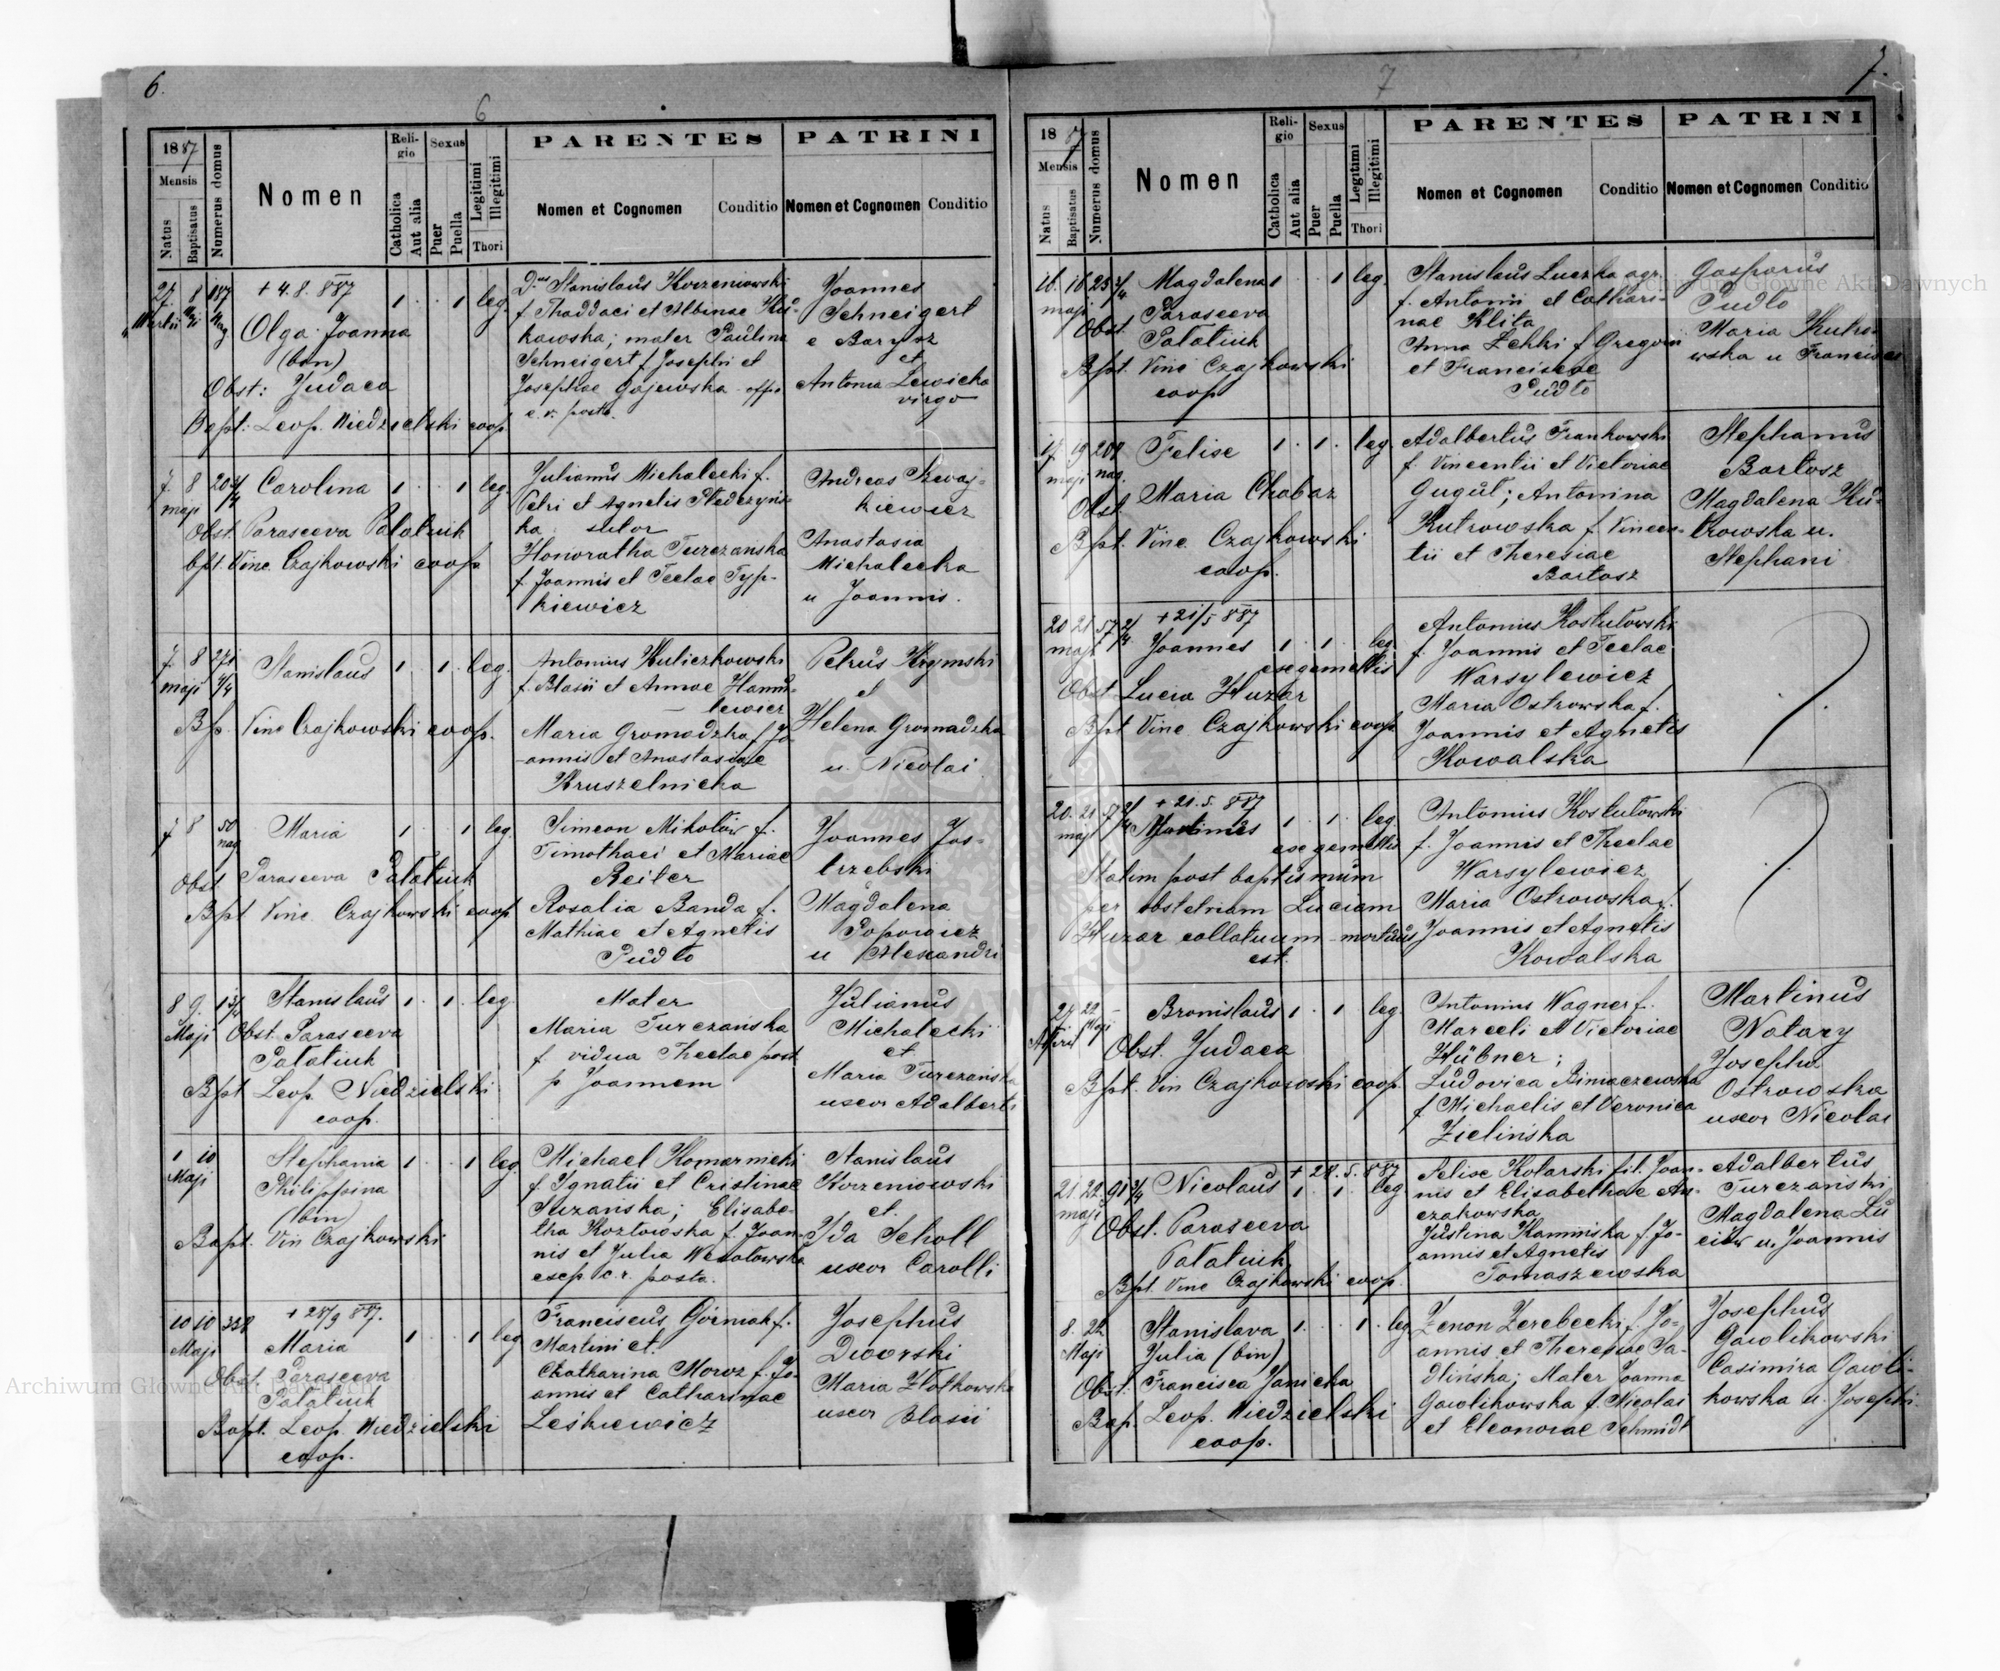 6.
6
1887
Mensis
Natus
Baptisatus
Numerus domus
Nomen
Religio
Catholica
Aut alia
Sexus
Puer
Puella
Legitimi
Illegitimi
Thori
PARENTES
Nomen et Cognomen
Conditio
PATRINI
Nomen et Cognomen
Conditio
27 8 187
Martii Maji nag
+ 4. 8. 887
Olga Joanna
(bin)
1 1 leg.
Obst: Judaea
Bapt: Leop. Niedzielski coop.
Dnus Stanislaus Korzeniowski
f. Thaddaei et Albinae
kowska; mater Paulina
Schneigert f. Josephi et
Josephae Gajewska
c. r. posta.
Joannes
Schneigert
e Barysz
et
Antonia Lewicka
virgo
7 8 20
maji
Carolina
1 1 leg.
Obst. Parasceva Pałatiuk
bpt. Vinc. Czajkowski coop.
Julianus Michalecki f.
Petri et Agnetis
ka sutor
Honoratha Turczańska
f. Joannis et Teclae Typ-
kiewicz
Andreas
kiewicz
Anastasia
Michalecka
u Joannis.
7 8 271
maji 1/4
Stanislaus
1 1 leg.
Bp. Vinc Czajkowski coop.
Antonius Kuliczkowski
f. Blasii et Annae
lewicz
Maria Gromadzka f. Jo-
-annis et Anastasiae
Kruszelnicka
Petrus Krymski
et
Helena Gromadzka
u. Nicolai
7 8 50
nag
Maria
1 1 leg.
Obst. Parasceva Pałatiuk
Bpt Vinc. Czajkowski coop.
Simeon Mikołów f.
Timothaei et Mariae
Reiter
Rosalia Banda f.
Mathiae et Agnetis
Pudło
Joannes Jas-
trzebski
Magdalena
Popowicz
u Alexandri
8 9.
Maji
Stanislaus
1 1 leg.
Obst Parasceva
Pałatiuk
Bpt Leop. Niedzielski
coop.
Mater
Maria Turczańska
f vidua Theclae post
p Joannem
Julianus
Michalecki
et
Maria Turczańska
uxor Adalberti
1 10
Maji
Stephania
Philippina
(bin)
1 1 leg.
Bapt. Vin Czajkowski
Michael Komarnicki
f. Ignatii et Cristinae
Suzanska; Elisabe-
tha Kozłowska f. Joan-
nis et Julia Wesołowska
exsp. c. r. posta.
Stanislaus
Korzeniowski
et.
Ida Scholl
uxor Carolli
10 10 328
Maji
+ 28/9 887.
Maria
1 1 leg
Obst. Parasceva
Pałatiuk
Bapt. Leop. Niedzielski
coop.
Franciscus Górniak f.
Martini et.
Chatharina Moroz f. Jo-
annis et Catharinae
Leśkiewicz
Josephus
Dworski
Maria Złotkowska
uxor Blasii
7.
7
1887
Mensis
Natus
Baptisatus
Numerus domus
Nomen
Religio
Catholica
Aut alia
Sexus
Puer
Puella
Legitimi
Illegitimi
Thori
PARENTES
Nomen et Cognomen
Conditio
PATRINI
Nomen et Cognomen
Conditio
16. 16 23
maji
Magdalena
1 1 leg.
Obst. Parasceva
Pałatiuk
Bpt. Vinc Czajkowski
coop
Stanislaus Luczka agr.
f. Antonii et Cathari-
nae Klita
Anna f Gregorii
et Franciscae
Pudło
Gasparus
Pudło
Maria Kutro-
wska u Francisci
17. 19 208
maji nag.
Felix
1 1 leg.
Obst. Maria Chabaz
Bpt. Vinc. Czajkowski
coop.
Adalbertus Frankowski
f. Vincentii et Victoriae
Gugut; Antonina
Kutrowska f. Vincen-
tii et Theresiae
Bartosz
Stephanus
Bartosz
Magdalena Ku-
trowska u.
Stephani
20 21 57
maji
+ 21/5 887
Joannes
1 1 leg
ex gemellis
Obst. Lucia Huzar
Bpt Vinc Czajkowski coop.
Antonius Kostutowski
f. Joannis et Teclae
Warsylewicz
Maria Ostrowska f.
Joannis et Agnetis
Kowalska
?
20. 21 57
maji
+ 21. 5. 887
1 1 leg.
ex gemellis
Statim post baptismum
per obstetriam Luciam
Huzar collatuum mortuus
est.
Antonius Kostutowski
f. Joannis et Theclae
Warsylewicz
Maria Ostrowska f.
Joannis et Agnetis
Kowalska
?
24 22 -
Aprili Maji
Bronislaus
1 1 leg.
Obst. Judaea
Bpt. Vin Czajkowski coop.
Antonius Wagner f.
Marceli et Victoriae
Hübner;
Ludovica
f Michaelis et Veronica
Zielińska
Martinus
Natary
Josepha
Ostrowska
uxor Nicolai
21. 22. 91
maji
Nicolaus
+ 28. 5. 887
1 1 leg
Obst. Parasceva
Pałatiuk
Bpt. Vinc Czajkowski coop.
Felix Kolarski fil. Joan-
nis et Elisabethae An-
czakowska
Justina Kaminska f. Jo-
annis et Agnetis
Tomaszewska
Adalbertus
Turczański
Magdalena Lu-
ciow u. Joannis
8. 22.
Maji
Stanislava
Julia (bin)
1. 1. leg
Obst. Francisca Janicka
Bap. Leop. Niedzielski
coop.
Zenon Zerebecki f. Jo-
annis et Theresiae Sa-
dlińska; Mater Joanna
Gawlikowska f. Nicolai
et Eleonorae Schmidt
Josephus
Gawlikowski
Casimira Gawli-
kowska u. Josephi.
Archiwum Główne Akt Dawnych
Archiwum Główne Akt Dawnych